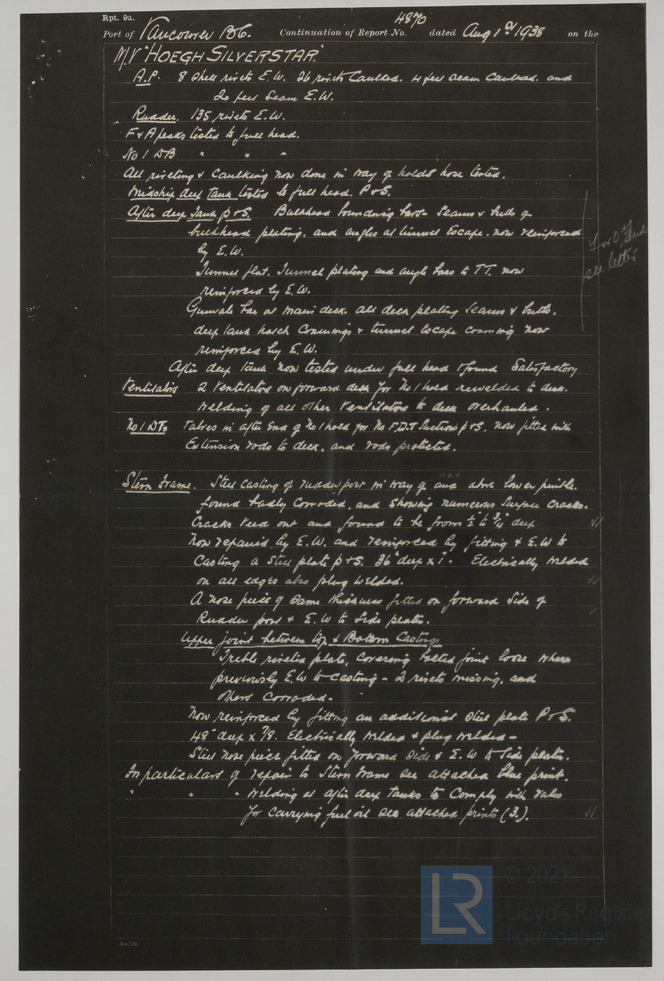 Rpt. 9a.
Port of Vancouver B.C. Continuation of Report No. 4870 dated Aug 1st 1938 on the
M/V "HOEGH SILVERSTAR."
A.P. 8 shell rivets E.W. 26 rivets Caulked. 4 feet seam Caulked. and
20 feet Seam E.W.
Rudder. 135 rivets E.W.
F & A peaks tested to full head.
No 1 DB " " "
All riveting & Caulking now done in way of holds hose tested.
Midship deep tank tested to full head. P & S.
After deep tank p & S. Bulkhead bounding bars. Seams & butts of
bulkhead plating, and angles at tunnel escape. now reinforced
by E.W.
Tunnel flat. Tunnel plating and angle bars to TT. now
reinforced by E.W.
Gunwale bar at main deck. all deck plating seams & butts.
deep tank hatch Coamings & tunnel escape coaming now
reinforced by E.W.
After deep tank now tested under full head & found Satisfactory
Ventilators 2 Ventilators on forward deck for No 1 hold rewelded to deck.
Welding of all other Ventilators to deck overhauled.
No 1 DTs Valves in after end of No 1 hold for No F.D.T Suctions p & S. now fitted with
Extension rods to deck, and rods protected.
Stern Frame. Steel Casting of rudder post in way of and above lower pintle.
found badly Corroded, and showing numerous surface cracks.
Cracks veed out and found to be from ½" to ¾" deep
Now repaired by E.W. and reinforced by fitting & E.W to
Casting a steel plate p & S. 36" deep x 1". Electrically welded
on all edges also plug welded.
A nose piece of same thickness fitted on forward side of
Rudder post & E.W to side plates.
Upper joint between top & Bottom Castings
Treble riveted plate, covering bolted joint loose where
previously E.W to Casting - 2 rivets missing, and
others Corroded.
Now reinforced by fitting an additional steel plate P & S.
48" deep x 7/8. Electrically welded & plug welded -
Steel nose piece fitted on forward side & E.W to side plates.
For particulars of repair to Stern Frame see attached blue print.
" " " Welding at after deep tanks to Comply with rules
for carrying fuel oil see attached prints (3.).
see letter
© 2021
LR
Lloyd's Register
Foundation